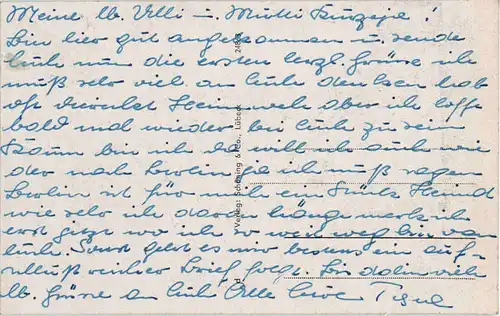 Meine lb. Ulli u. Mutti Kurzeja!
Bin hier gut angekommen u. sende
Euch nun die ersten herzl. Grüsse ich
muß sehr viel an Euch denken hab
oft Heimweh aber ich hoffe
bald mal wieder bei Euch zu sein
Kaum bin ich da will ich auch wie
der nach Berlin ja ich muß sagen
Berlin ist für mich ein Stück Heimat
wie sehr ich daran hänge merk ich
erst jetzt wo ich so weit weg bin von
Euch. Sonst geht es mir besuns ein
Brief folgt. Bis dahin viele
lb. Grüsse an Euch Alle
Verlag: Schöning & Co., Lübeck